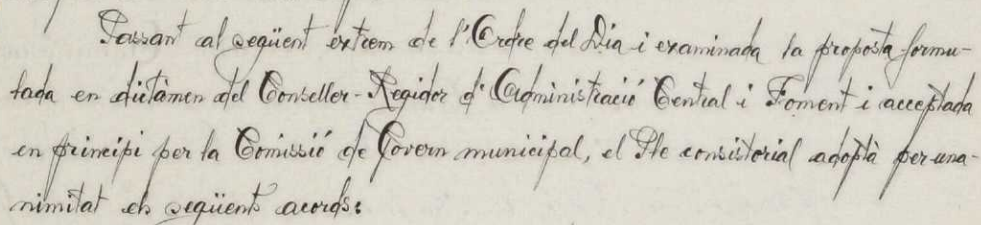 Passant al següent extrem de l'Ordre del Dia i examinada la proposta formu-
lada en dictàmen del Conseller-Regidor d'Administració Central i Foment i acceptada
en principi per la Comissió de Govern municipal, el Ple consistorial adoptà per una-
nimitat els següents acords: